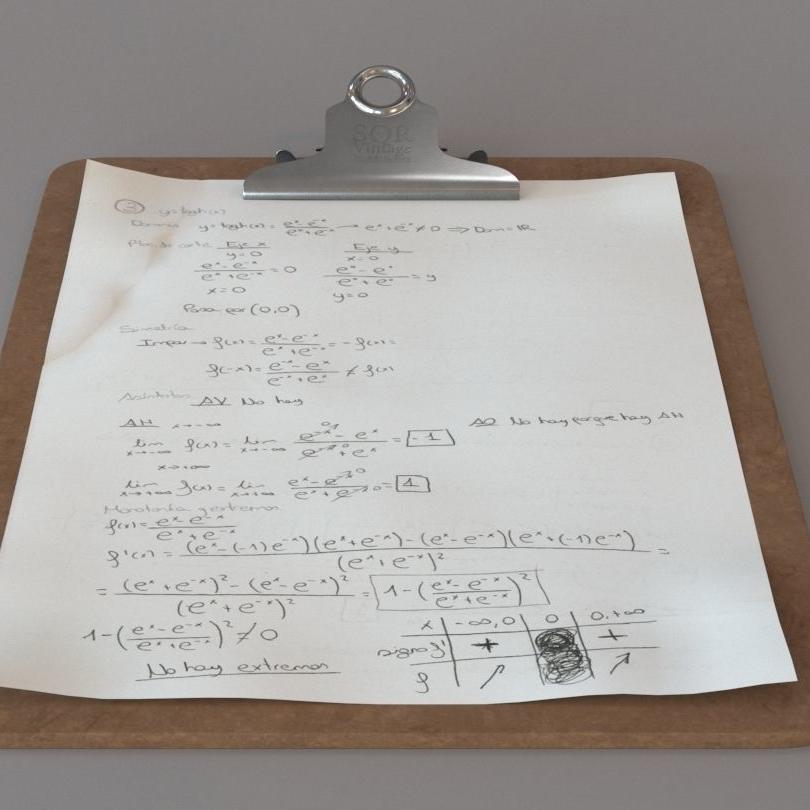 SOR
Vintage
③ y=tgh(x)
Dominio y=tgh(x)= (eˣ-e⁻ˣ)/(eˣ+e⁻ˣ) → eˣ+e⁻ˣ≠0 ⇒ Dom=ℝ
Ptos de corte Eje x Eje y
y=0 x=0
(eˣ-e⁻ˣ)/(eˣ+e⁻ˣ)=0 (eˣ-eˣ)/(eˣ+eˣ)=y
x=0 y=0
Pasa por (0,0)
Simetría
Impar → f(x)= (eˣ-e⁻ˣ)/(eˣ+e⁻ˣ) = -f(x)=
f(-x)= (e⁻ˣ-eˣ)/(e⁻ˣ+eˣ) ≠ f(x)
Asíntotas AV No hay
AH x→-∞ AO No hay porque hay AH
lim x→-∞ f(x)= lim x→-∞ (e⁻ˣ-eˣ)/(e⁻ˣ+eˣ) = -1
x→+∞
lim x→+∞ f(x)= lim x→+∞ (eˣ-e⁻ˣ)/(eˣ+e⁻ˣ) = 1
Monotonía y extremos
f(x)= (eˣ-e⁻ˣ)/(eˣ+e⁻ˣ)
f'(x)= ((eˣ-(-1)e⁻ˣ)(eˣ+e⁻ˣ)-(eˣ-e⁻ˣ)(eˣ+(-1)e⁻ˣ))/(eˣ+e⁻ˣ)² =
= ((eˣ+e⁻ˣ)²-(eˣ-e⁻ˣ)²)/(eˣ+e⁻ˣ)² = 1-((eˣ-e⁻ˣ)/(eˣ+e⁻ˣ))²
1-((eˣ-e⁻ˣ)/(eˣ+e⁻ˣ))² ≠0
No hay extremos
x -∞,0 0 0,+∞
signo f' + +
f ↗ ↗